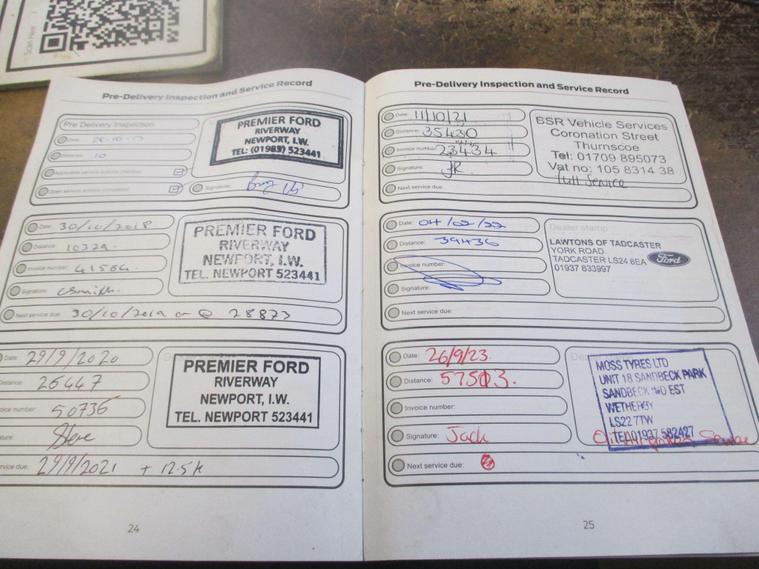 Scan Here
Pre-Delivery Inspection and Service Record
Pre Delivery Inspection
Date:
Distance: 10
Signature:
PREMIER FORD
RIVERWAY
NEWPORT, I.W.
TEL: (01983) 523441
Date: 30/10/2018
Distance: 10329.
Invoice number: 41564
Signature:
Next service due: 30/10/2019 or @ 28873
PREMIER FORD
RIVERWAY
NEWPORT, I.W.
TEL. NEWPORT 523441
Date: 29/9/2020
Distance: 26447
Invoice number: 50736
Signature: Steve
Service due: 29/9/2021 + 12.5K
PREMIER FORD
RIVERWAY
NEWPORT, I.W.
TEL. NEWPORT 523441
24
Pre-Delivery Inspection and Service Record
Date: 11/10/21
Distance: 35430
Invoice number: 23434
Signature: JK
Next service due:
BSR Vehicle Services
Coronation Street
Thurnscoe
Tel: 01709 895073
Vat no: 105 8314 38
full Service
Date: 04/02/22
Distance: 39436
Invoice number:
Signature:
Next service due:
Dealer stamp
LAWTONS OF TADCASTER
YORK ROAD
TADCASTER LS24 8EA
01937 833997
Ford
Date: 26/9/23.
Distance: 57503.
Invoice number:
Signature: Jack
Next service due:
MOSS TYRES LTD
UNIT 18 SANDBECK PARK
SANDBECK IND EST
WETHERBY
LS22 7TW
TEL 01937 582427
Service
25